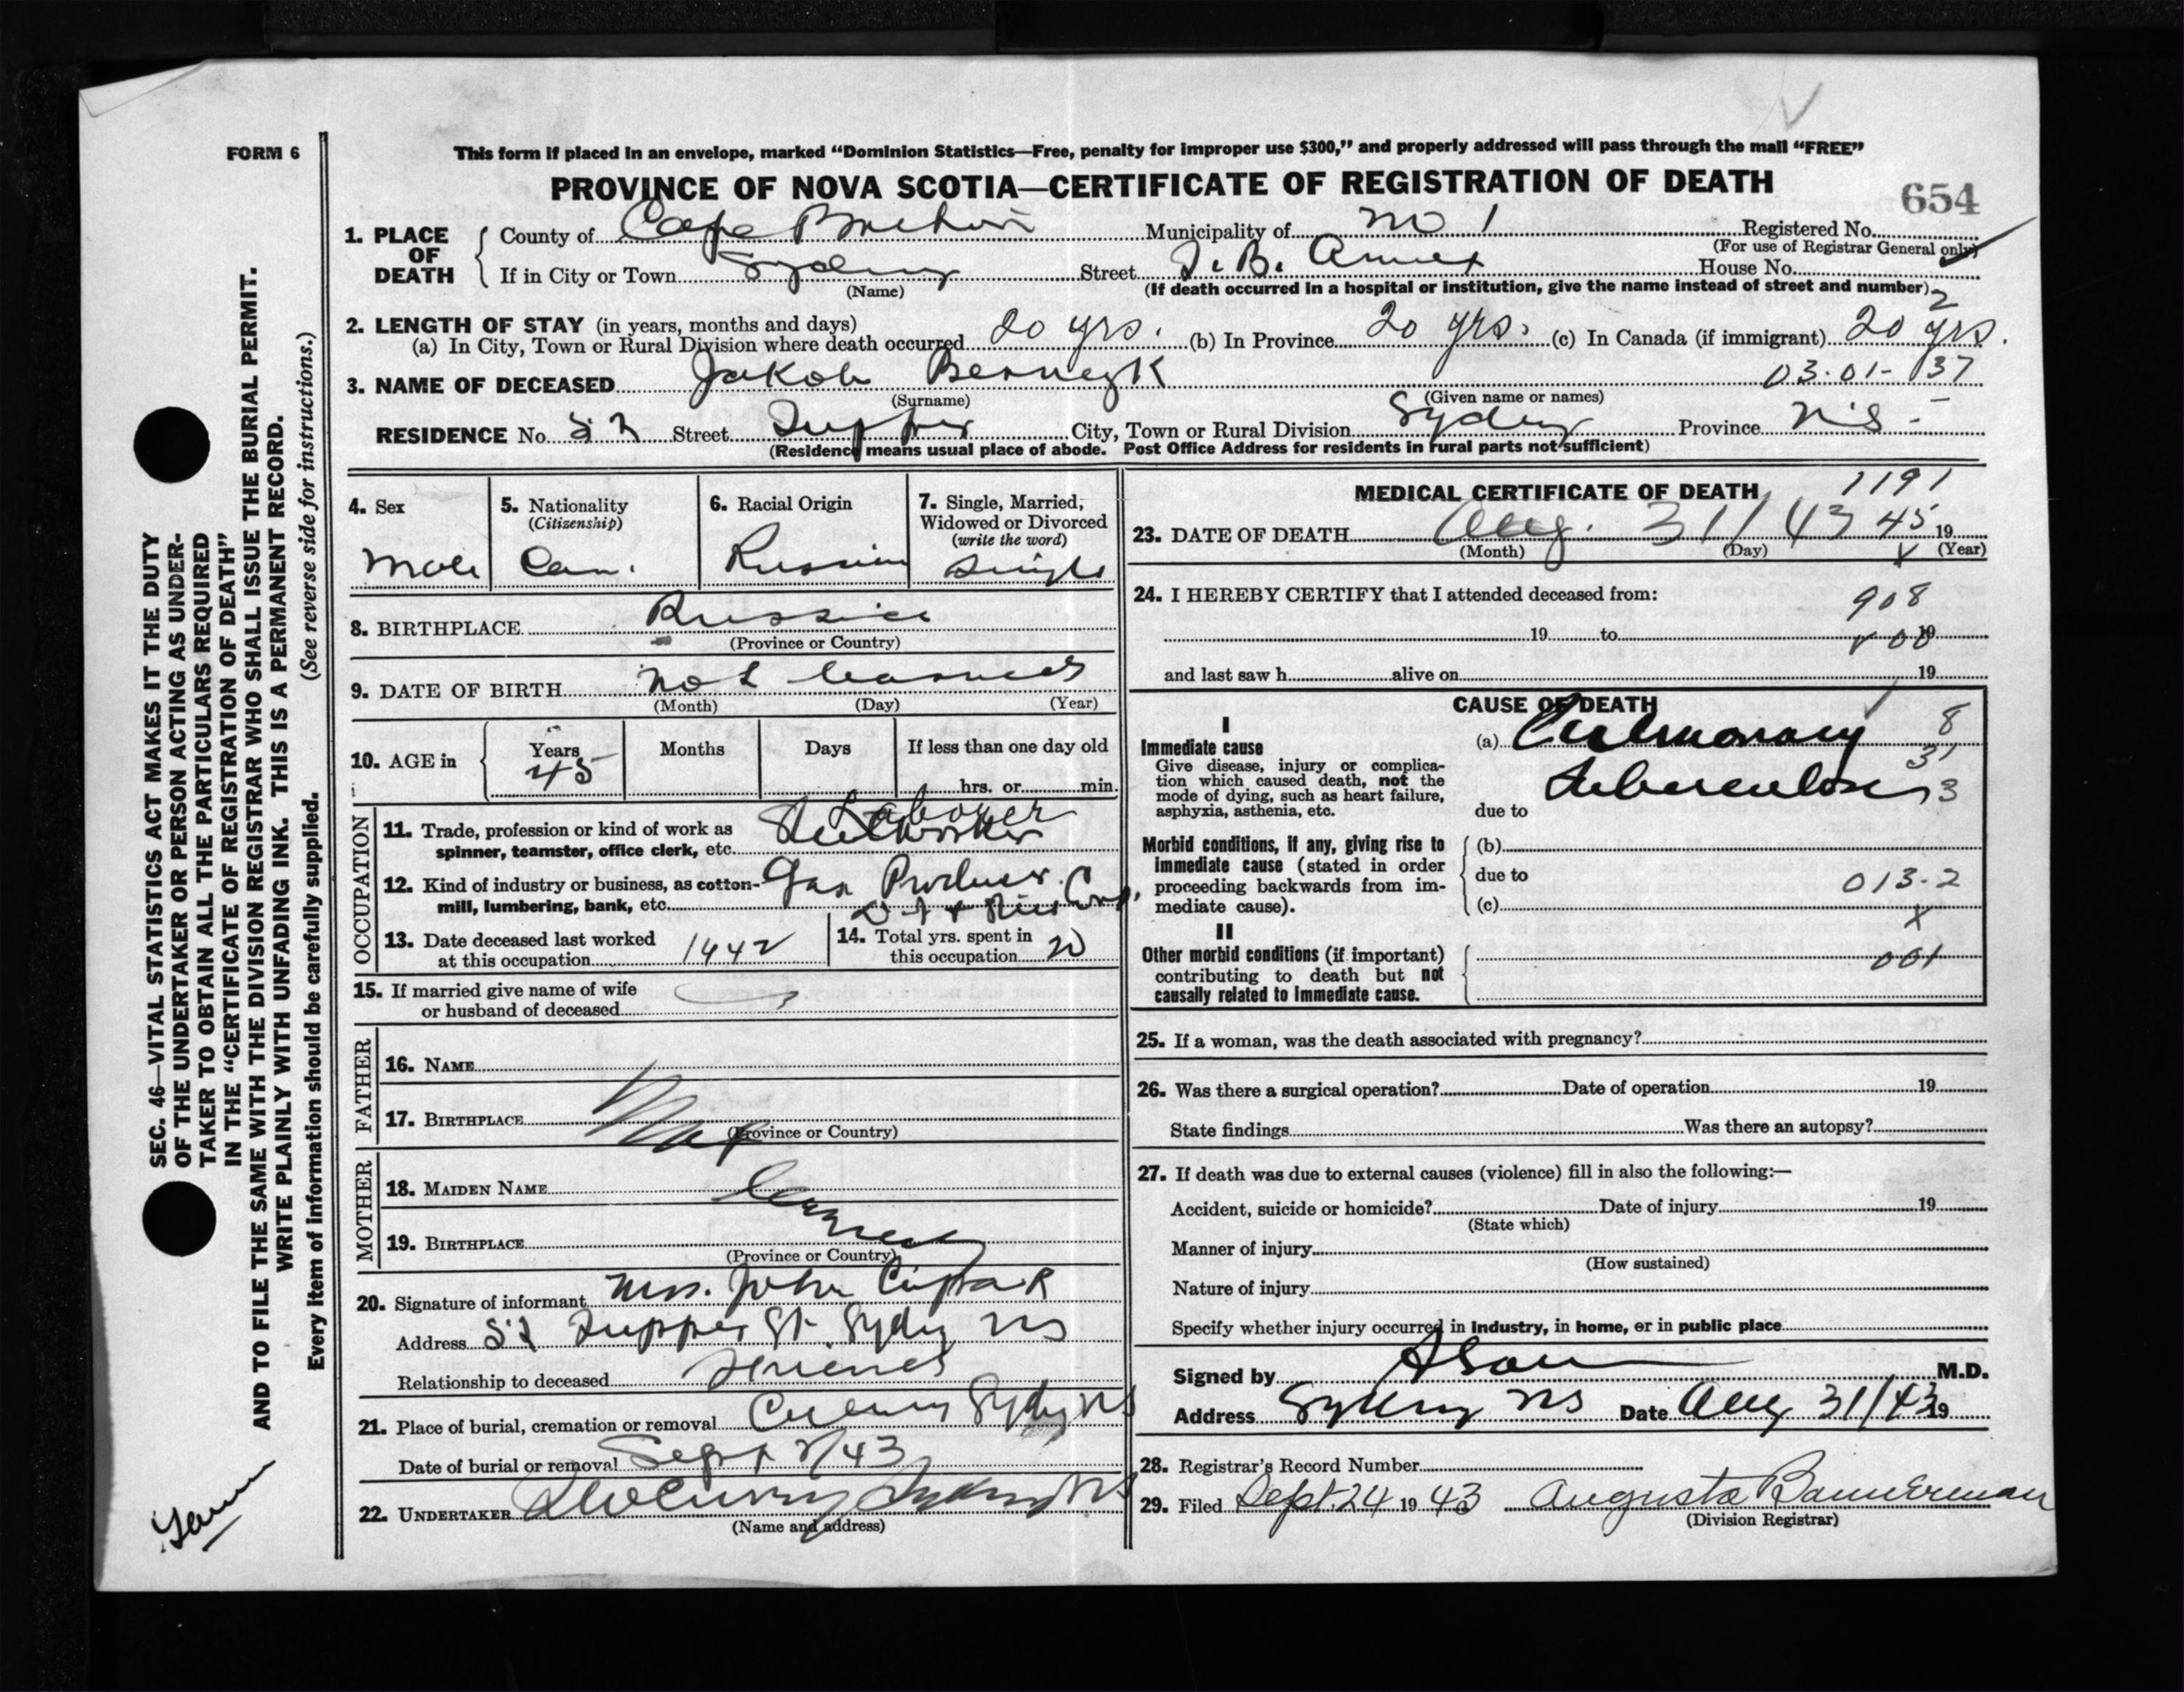 FORM 6
This form if placed in an envelope, marked "Dominion Statistics—Free, penalty for improper use $300," and properly addressed will pass through the mail "FREE"
PROVINCE OF NOVA SCOTIA—CERTIFICATE OF REGISTRATION OF DEATH
654
1. PLACE OF DEATH
County of Cape Breton Municipality of No 1 Registered No.
(For use of Registrar General only)
If in City or Town Sydney Street T. B. Annex House No.
(Name) (If death occurred in a hospital or institution, give the name instead of street and number)
2
2. LENGTH OF STAY (in years, months and days)
(a) In City, Town or Rural Division where death occurred 20 yrs. (b) In Province 20 yrs. (c) In Canada (if immigrant) 20 yrs.
3. NAME OF DECEASED Jakob 03-01-137
(Surname) (Given name or names)
RESIDENCE No. Street Tupper City, Town or Rural Division Sydney Province N.S.
(Residence means usual place of abode. Post Office Address for residents in rural parts not sufficient)
4. Sex
Male
5. Nationality
(Citizenship)
Can.
6. Racial Origin
Russian
7. Single, Married, Widowed or Divorced
(write the word)
Single
8. BIRTHPLACE Russia
(Province or Country)
9. DATE OF BIRTH not learned
(Month) (Day) (Year)
10. AGE in
Years 45 Months Days If less than one day old
hrs. or min.
OCCUPATION
Laborer
11. Trade, profession or kind of work as Steelworker
spinner, teamster, office clerk, etc.
12. Kind of industry or business, as cotton- Gas Producer
mill, lumbering, bank, etc. Corp.
13. Date deceased last worked
at this occupation 1442
14. Total yrs. spent in
this occupation 20
15. If married give name of wife
or husband of deceased
FATHER
16. NAME
17. BIRTHPLACE Not
(Province or Country)
MOTHER
18. MAIDEN NAME learned
19. BIRTHPLACE
(Province or Country)
20. Signature of informant Mrs. John
Address Tupper St. Sydney NS
Relationship to deceased friend
21. Place of burial, cremation or removal Sydney NS
Date of burial or removal Sept 2/43
22. UNDERTAKER Sydney NS
(Name and address)
MEDICAL CERTIFICATE OF DEATH
1191
23. DATE OF DEATH Aug. 31/43 45 19
(Month) (Day) (Year)
24. I HEREBY CERTIFY that I attended deceased from:
908
19 to 19
and last saw h alive on 19
CAUSE OF DEATH
I
Immediate cause
Give disease, injury or complica-
tion which caused death, not the
mode of dying, such as heart failure,
asphyxia, asthenia, etc.
(a) Pulmonary 8
31
Tuberculosis 3
due to
Morbid conditions, if any, giving rise to
immediate cause (stated in order
proceeding backwards from im-
mediate cause).
(b)
due to
013-2
(c)
X
II
Other morbid conditions (if important)
contributing to death but not
causally related to immediate cause.
001
25. If a woman, was the death associated with pregnancy?
26. Was there a surgical operation? Date of operation 19
State findings Was there an autopsy?
27. If death was due to external causes (violence) fill in also the following:—
Accident, suicide or homicide? Date of injury 19
(State which)
Manner of injury
(How sustained)
Nature of injury
Specify whether injury occurred in industry, in home, or in public place
Signed by M.D.
Address Sydney NS Date Aug 31/43 19
28. Registrar's Record Number
29. Filed Sept. 24 1943 Augusta Bannerman
(Division Registrar)
SEC. 46—VITAL STATISTICS ACT MAKES IT THE DUTY
OF THE UNDERTAKER OR PERSON ACTING AS UNDER-
TAKER TO OBTAIN ALL THE PARTICULARS REQUIRED
IN THE "CERTIFICATE OF REGISTRATION OF DEATH"
AND TO FILE THE SAME WITH THE DIVISION REGISTRAR WHO SHALL ISSUE THE BURIAL PERMIT.
WRITE PLAINLY WITH UNFADING INK. THIS IS A PERMANENT RECORD.
Every item of information should be carefully supplied. (See reverse side for instructions.)